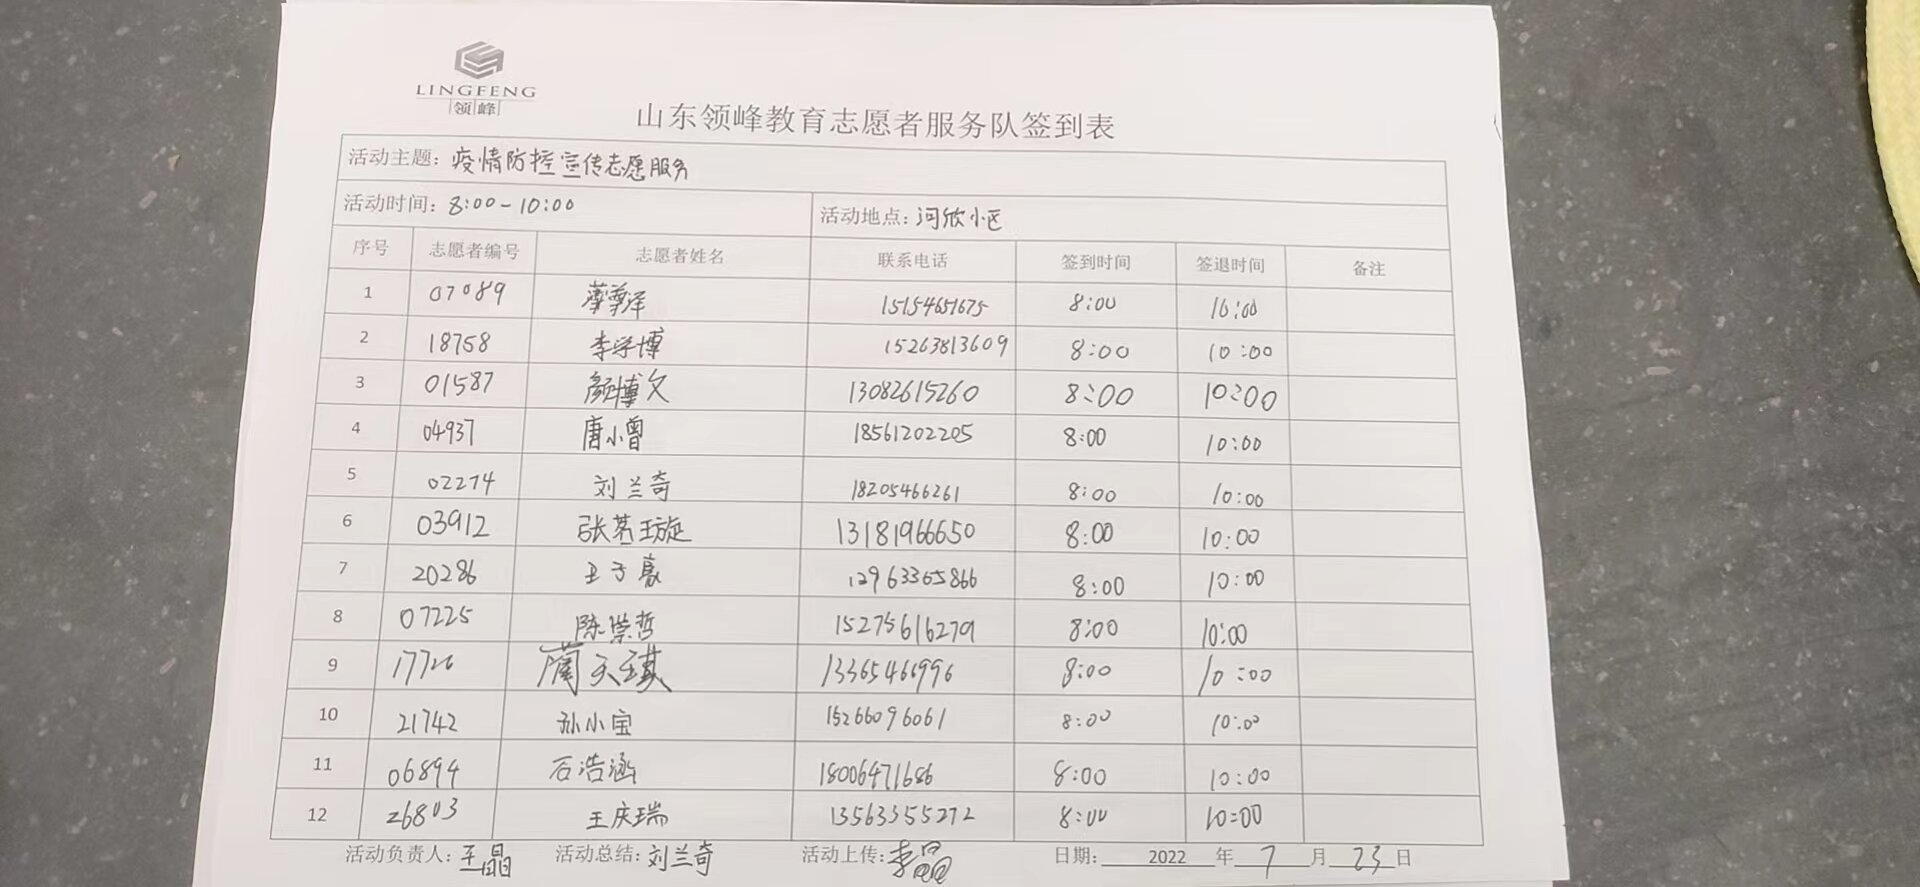 LINGFENG
领峰
山东领峰教育志愿者服务队签到表
活动主题：疫情防控宣传志愿服务
活动时间：8:00-10:00 活动地点：河欣小区
序号 志愿者编号 志愿者姓名 联系电话 签到时间 签退时间 备注
1 07089 15154651675 8:00 10:00
2 18758 李学博 15263813609 8:00 10:00
3 01587 颜博文 13082615260 8:00 10:00
4 04937 唐小曾 18561202205 8:00 10:00
5 02274 刘兰奇 18205466261 8:00 10:00
6 03912 张茗璇 13181966650 8:00 10:00
7 20286 王子豪 12963365866 8:00 10:00
8 07225 陈崇哲 15275616279 8:00 10:00
9 17726 蔺天琪 13365466996 8:00 10:00
10 21742 孙小宝 15266096061 8:00 10:00
11 06894 石浩涵 18006471686 8:00 10:00
12 26803 王庆瑞 13563355272 8:00 10:00
活动负责人：王晶 活动总结：刘兰奇 活动上传：李晶 日期：2022 年 7 月 23 日